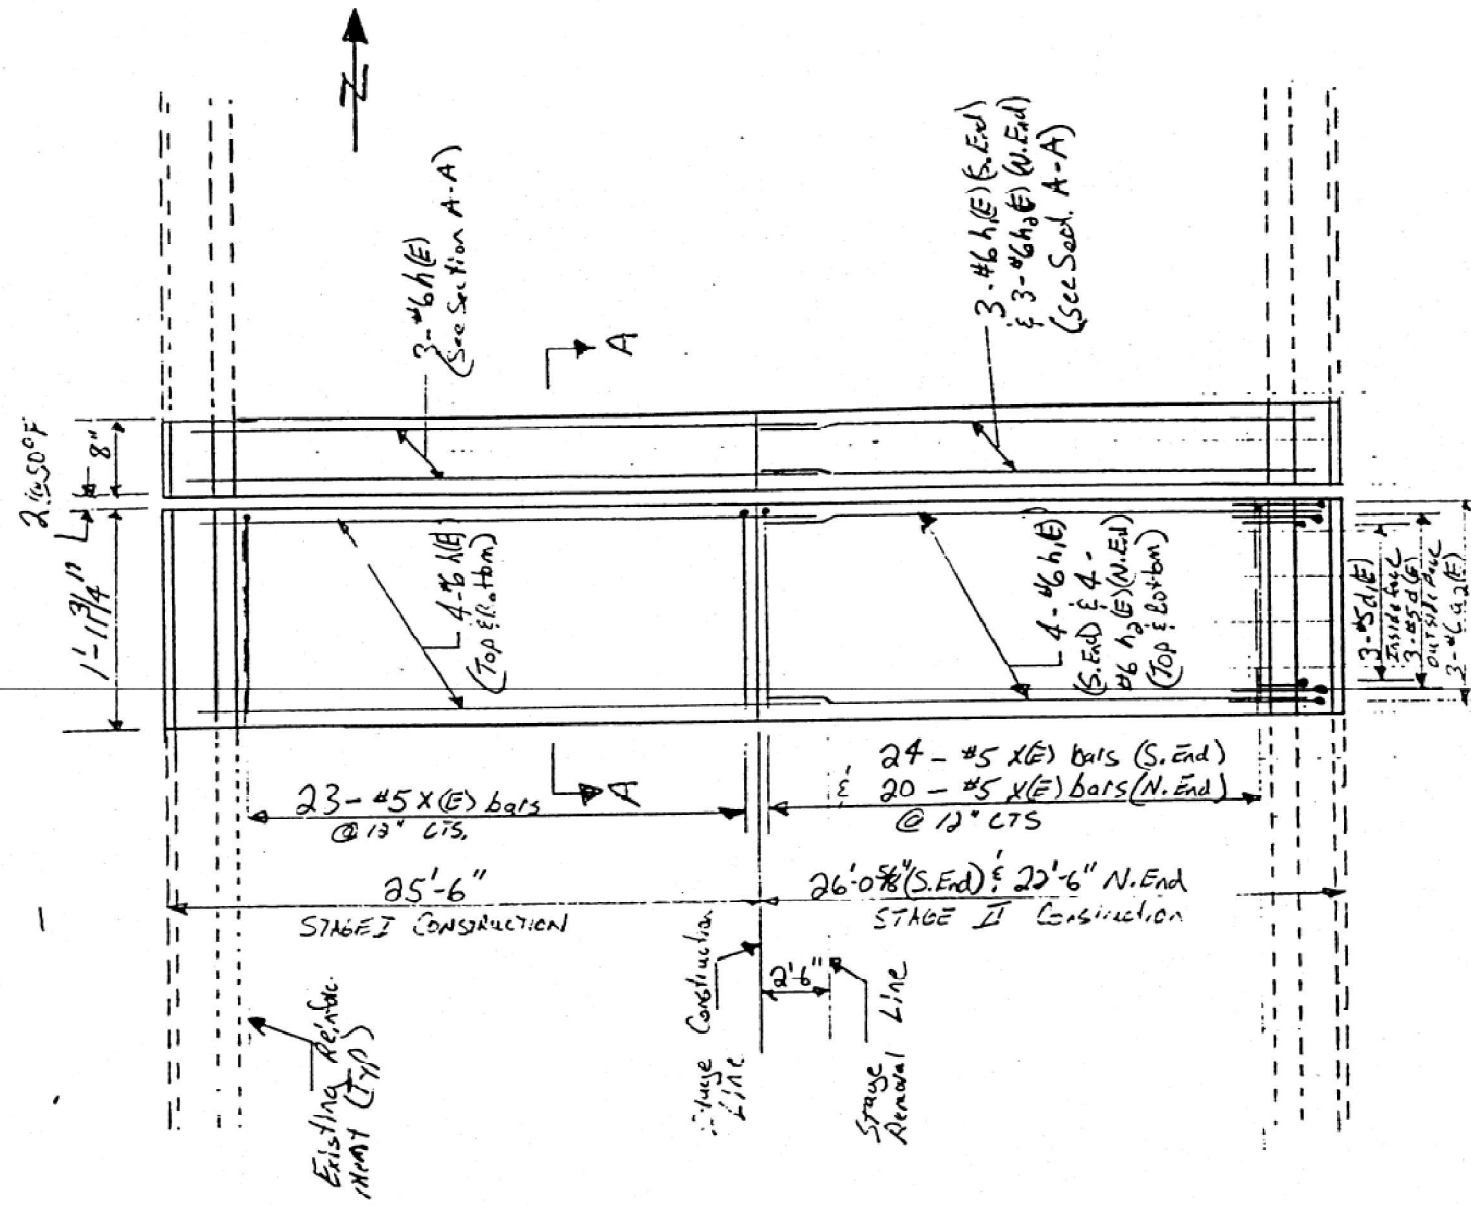 Z
3-#6 h(E)
(See Section A-A)
3-#6 h1(E)(S.End)
& 3-#6 h2(E)(N.End)
(See Sect. A-A)
A
2" @ 50°F
8"
1'-11 3/4"
4-#6 h(E)
(Top & Bottom)
4-#6 h1(E)
(S.End) & 4-
#6 h2(E)(N.End)
(Top & Bottom)
3-#5 d1(E)
Inside Face
3-#5 d(E)
Outside Face
3-#6 a2(E)
A
23-#5 X(E) bars
@ 12" CTS.
24-#5 X(E) bars (S. End)
& 20-#5 X(E) bars (N. End)
@ 12" CTS
25'-6"
STAGE I CONSTRUCTION
26'-0 5/8" (S.End) & 22'-6" N.End
STAGE II Construction
2'-6"
Existing Reinforc-
ment (Typ)
Stage Construction
Line
Stage
Removal Line